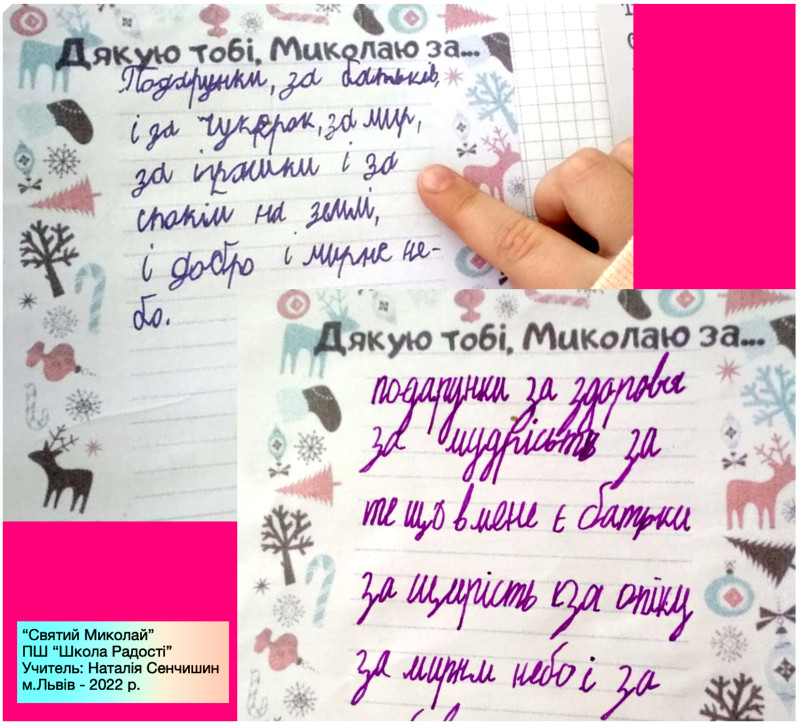 Дякую тобі, Миколаю за...
Подарунки, за батьків,
і за чукерок, за мир,
за іграшки і за
спокій на землі,
і добро і мирне не-
бо.
Дякую тобі, Миколаю за...
подарунки за здоровья
за мудрість за
те що в мене є батьки
за щирість за опіку
за мирни небо і за
“Святий Миколай”
ПШ “Школа Радості”
Учитель: Наталія Сенчишин
м.Львів - 2022 р.